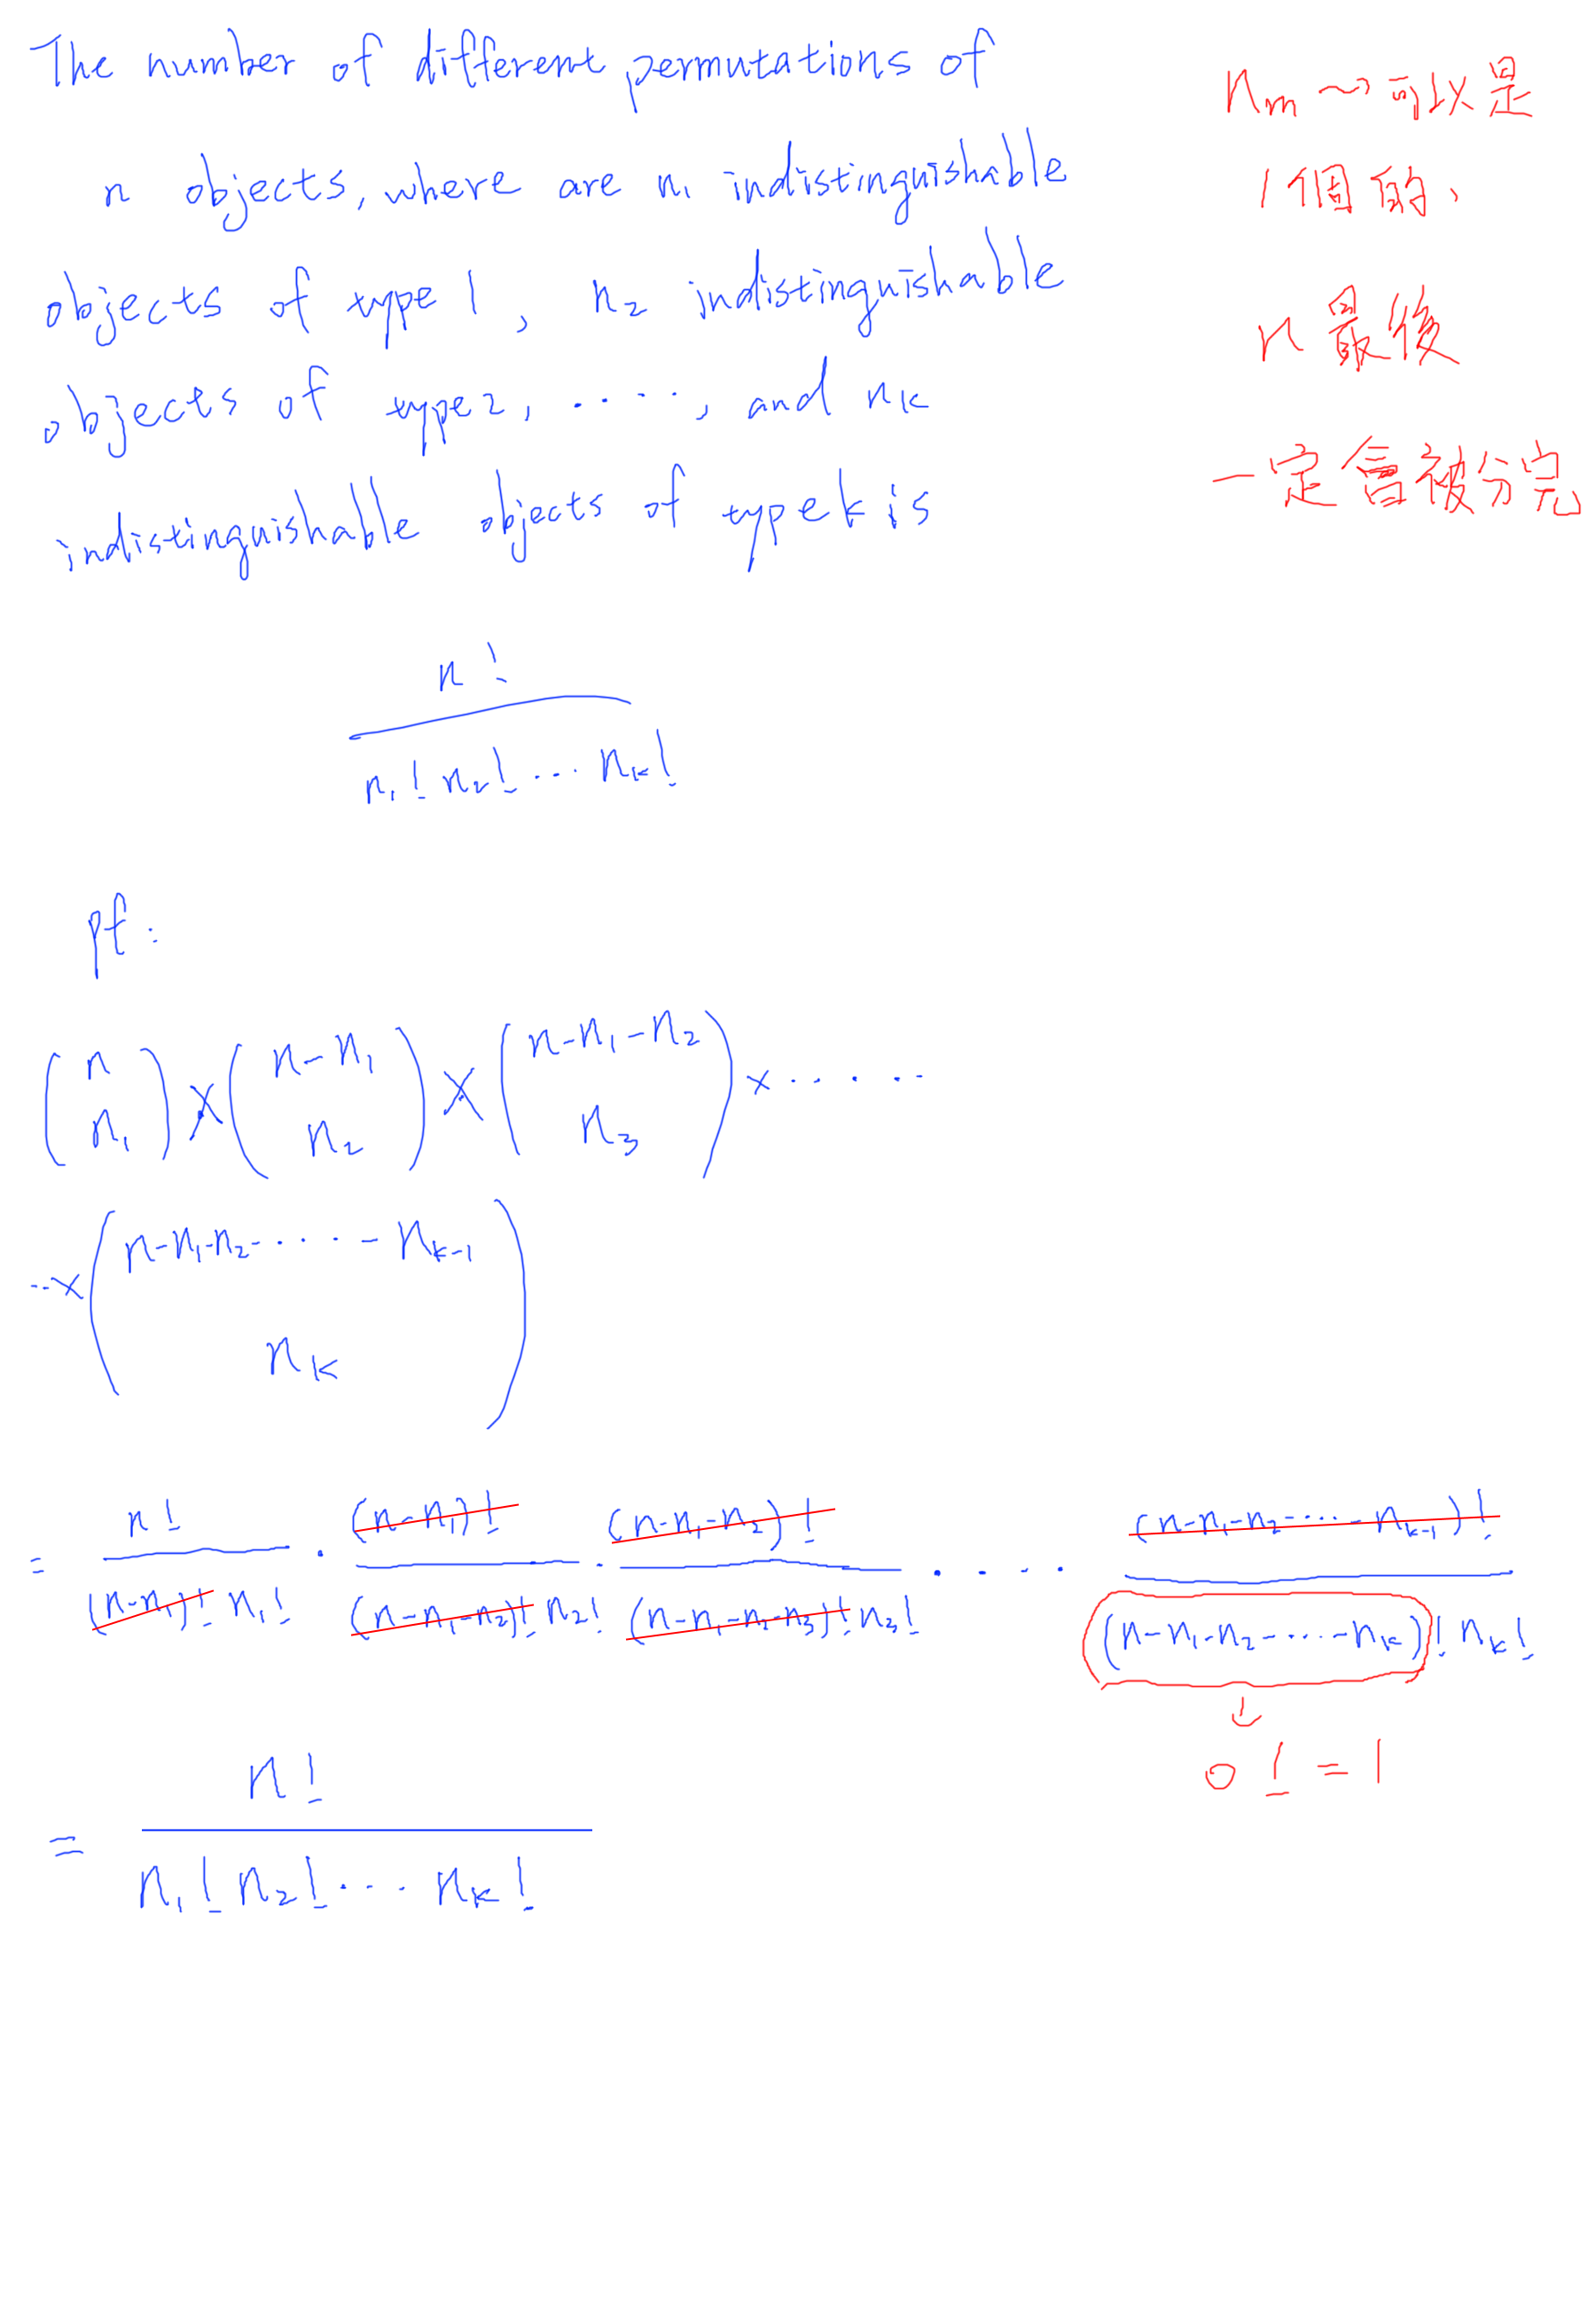 The number of different permutations of
n objects, where are n₁ indistinguishable
objects of type 1, n₂ indistinguishable
objects of type 2, ....., and nₖ
indistinguishable objects of type k is
n!
n₁! n₂! ... nₖ!
nₘ ~ 可以是
1個的、
n 最後
一定會被分完
pf:
(n n₁) × (n-n₁ n₂) × (n-n₁-n₂ n₃) × .....
..× (n-n₁-n₂-....-nₖ₋₁ nₖ)
= n!/((n-n₁)! n₁!) · (n-n₁)!/((n-n₁-n₂)! n₂!) · (n-n₁-n₂)!/((n-n₁-n₂-n₃)! n₃!) · · · · (n-n₁-n₂-...-nₖ₋₁)!/((n-n₁-n₂-....-nₖ)! nₖ!)
↓
0! = 1
= n!/(n₁! n₂! ... nₖ!)